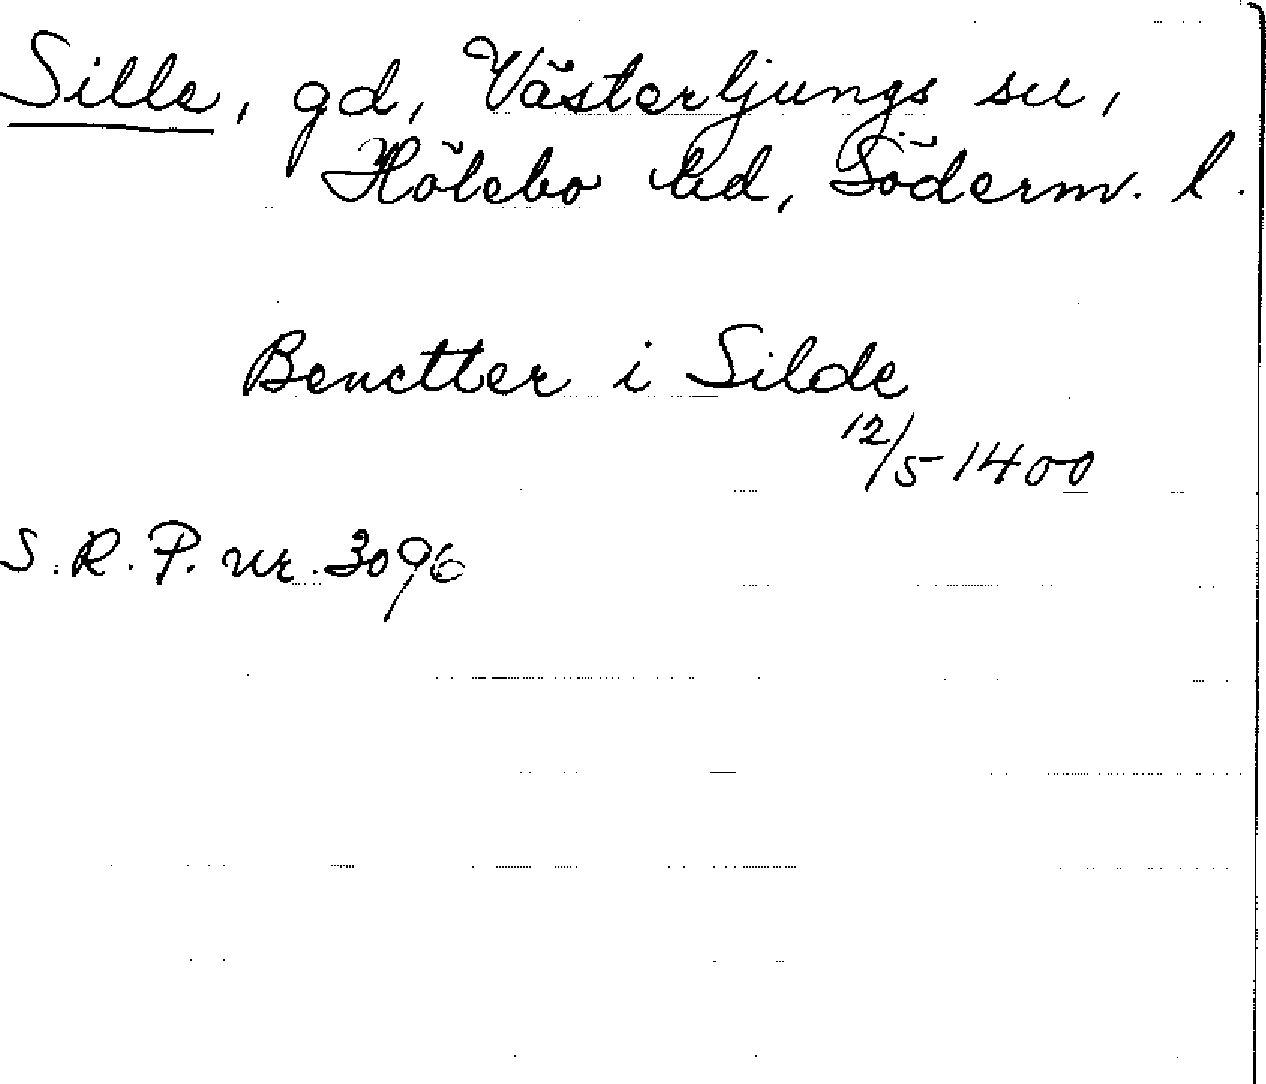 Sille, gd, Västerljungs sn,
Hölebo hd, Söderm. l.
Benctter i Silde
12/5 1400
S.R.P. nr. 3096